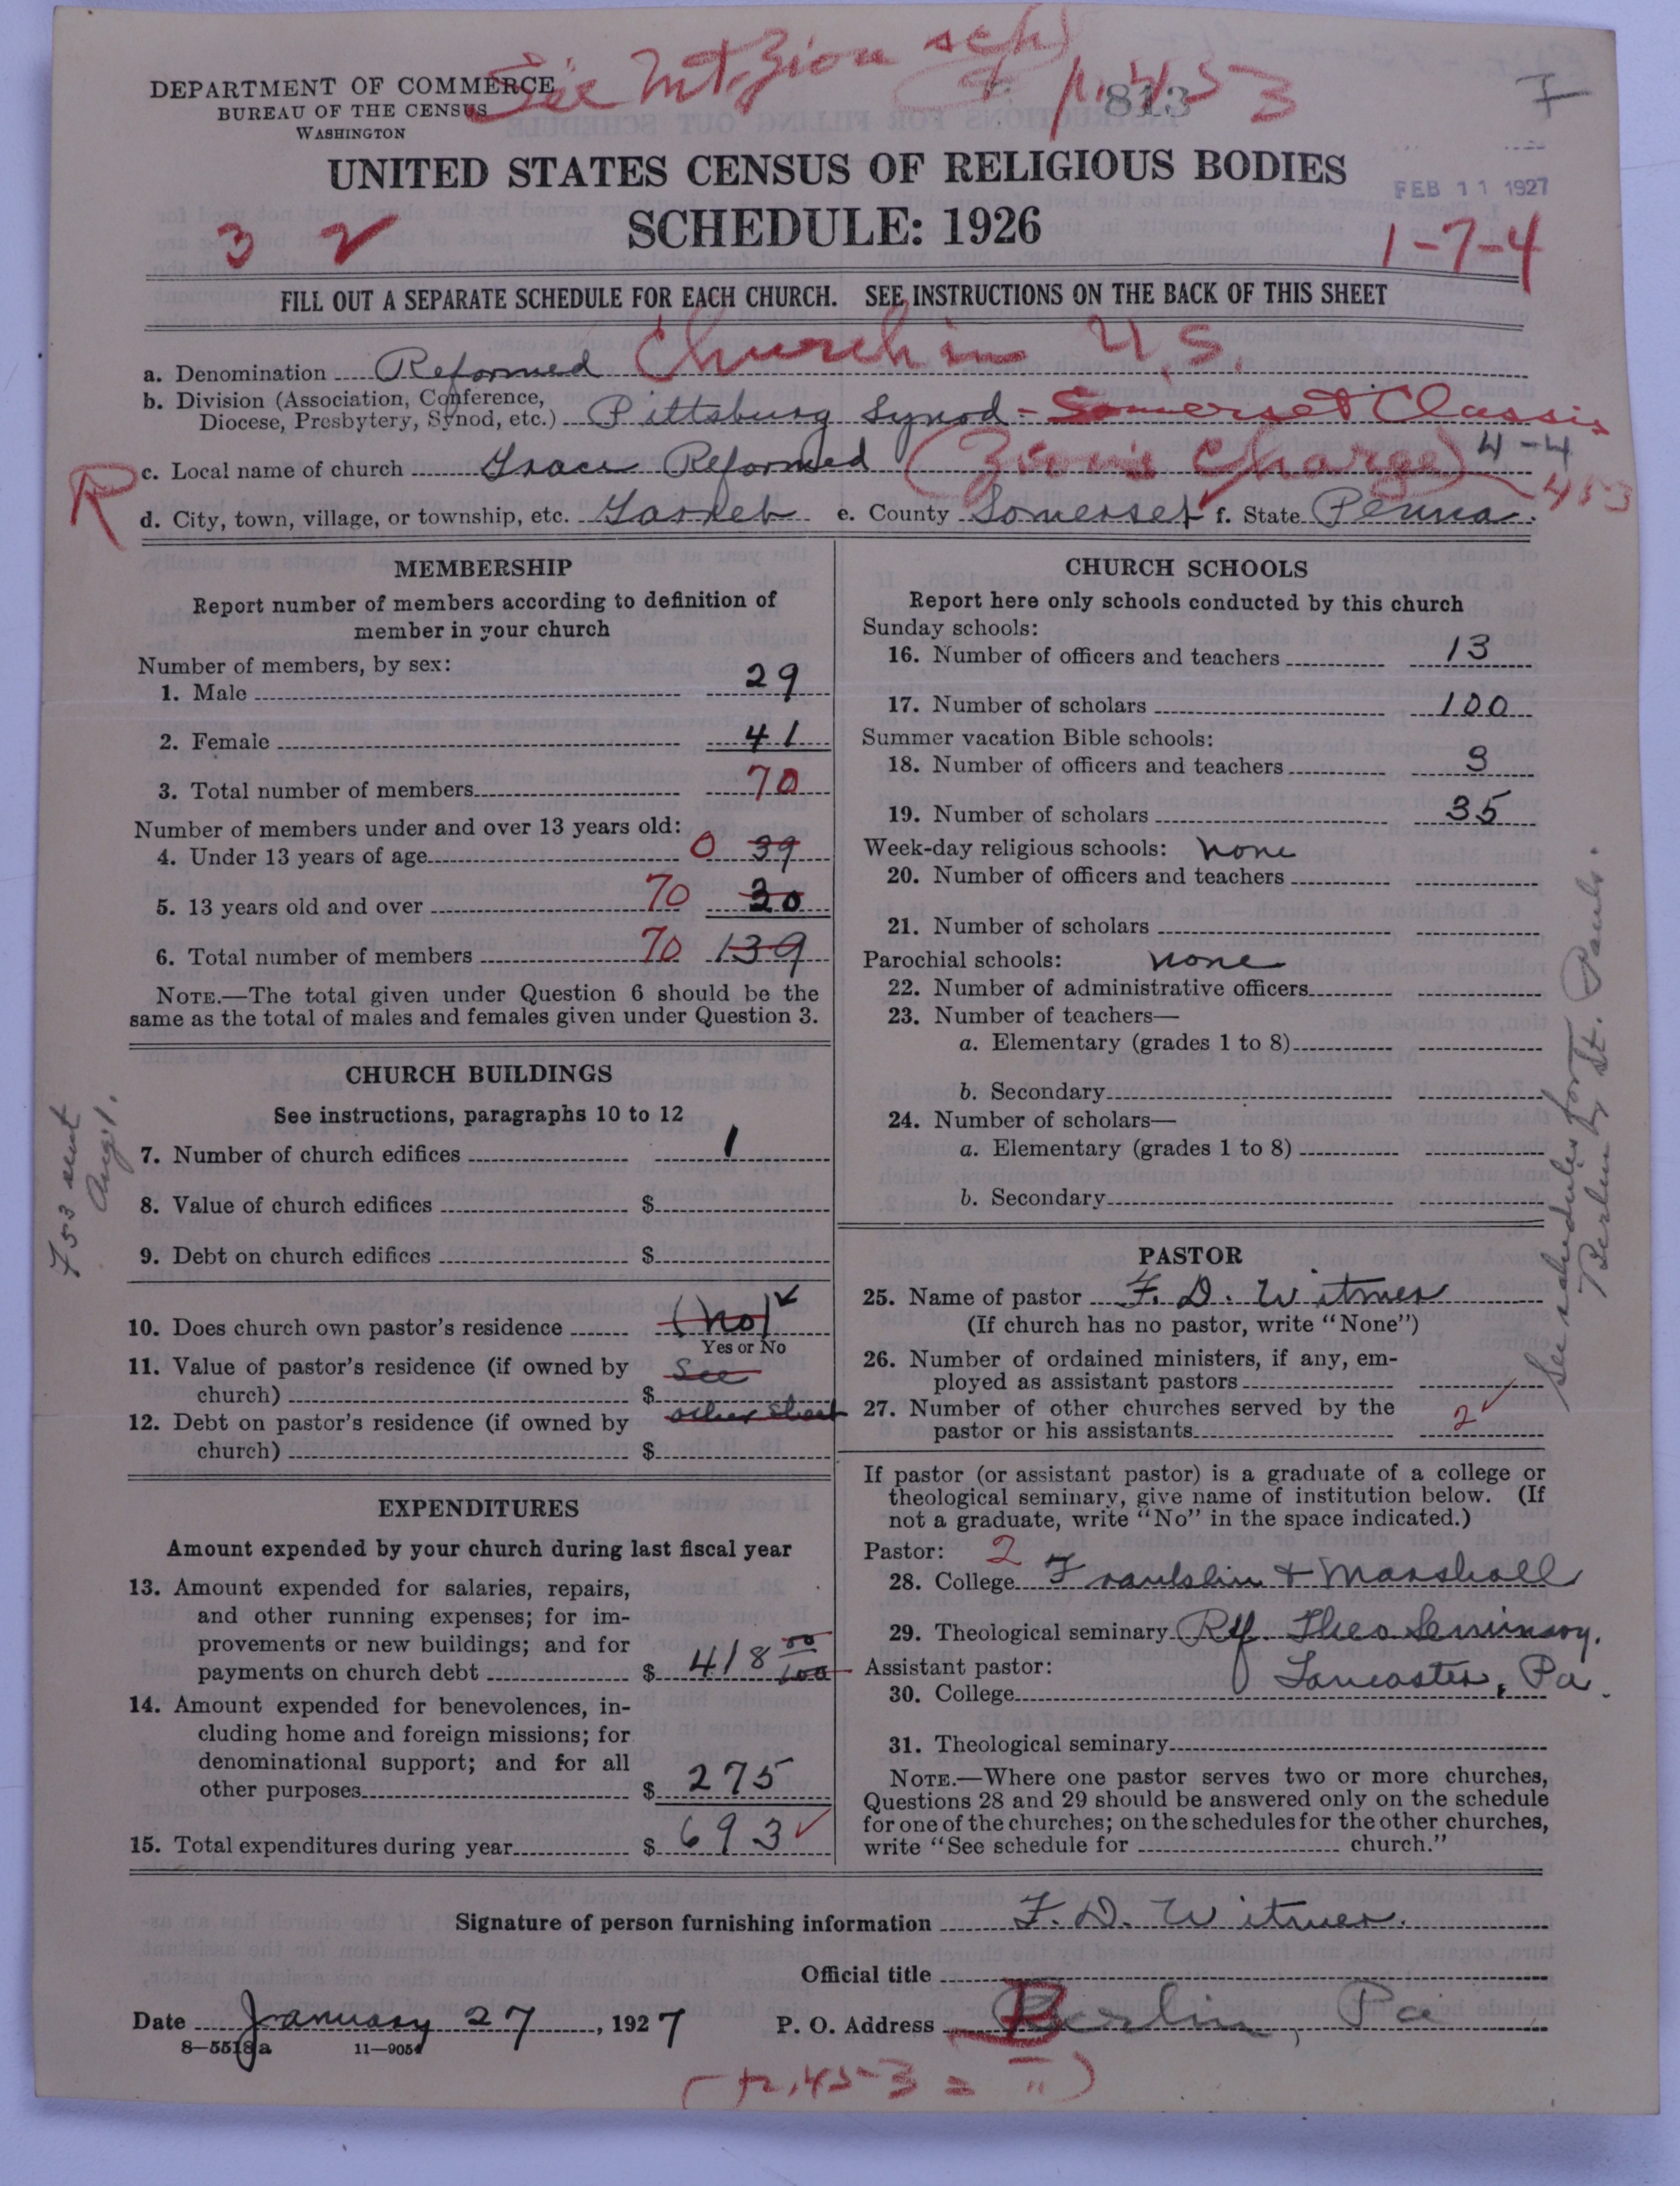 See Mt. Zion sch
p. 453
813
7
DEPARTMENT OF COMMERCE
BUREAU OF THE CENSUS
WASHINGTON
UNITED STATES CENSUS OF RELIGIOUS BODIES
FEB 11 1927
SCHEDULE: 1926
3 2
1-7-4
FILL OUT A SEPARATE SCHEDULE FOR EACH CHURCH. SEE INSTRUCTIONS ON THE BACK OF THIS SHEET
a. Denomination Reformed Church in U.S.
b. Division (Association, Conference,
Diocese, Presbytery, Synod, etc.) Pittsburg Synod - Somerset Classis
c. Local name of church Grace Reformed (Zion's Charge) 4-4
R
453
d. City, town, village, or township, etc. e. County Somerset f. State Penna.
MEMBERSHIP
Report number of members according to definition of
member in your church
Number of members, by sex:
1. Male 29
2. Female 41
3. Total number of members 70
Number of members under and over 13 years old:
4. Under 13 years of age 0 39
5. 13 years old and over 70 30
6. Total number of members 70 139
NOTE.—The total given under Question 6 should be the
same as the total of males and females given under Question 3.
CHURCH BUILDINGS
See instructions, paragraphs 10 to 12
7. Number of church edifices 1
8. Value of church edifices $
9. Debt on church edifices $
10. Does church own pastor's residence (no)
Yes or No
11. Value of pastor's residence (if owned by
church) $ See
12. Debt on pastor's residence (if owned by other sheet
church) $
F 53 sent
Aug 1.
EXPENDITURES
Amount expended by your church during last fiscal year
13. Amount expended for salaries, repairs,
and other running expenses; for im-
provements or new buildings; and for
payments on church debt $ 418 00/100
14. Amount expended for benevolences, in-
cluding home and foreign missions; for
denominational support; and for all
other purposes $ 275
15. Total expenditures during year $ 693
CHURCH SCHOOLS
Report here only schools conducted by this church
Sunday schools:
16. Number of officers and teachers 13
17. Number of scholars 100
Summer vacation Bible schools:
18. Number of officers and teachers
19. Number of scholars 35
Week-day religious schools: none
20. Number of officers and teachers
21. Number of scholars
Parochial schools: none
22. Number of administrative officers
23. Number of teachers—
a. Elementary (grades 1 to 8)
b. Secondary
24. Number of scholars—
a. Elementary (grades 1 to 8)
b. Secondary
See schedules for
Berlin St. Pauls.
PASTOR
25. Name of pastor F. D. Witmer
(If church has no pastor, write "None")
26. Number of ordained ministers, if any, em-
ployed as assistant pastors
27. Number of other churches served by the
pastor or his assistants 2
If pastor (or assistant pastor) is a graduate of a college or
theological seminary, give name of institution below. (If
not a graduate, write "No" in the space indicated.)
Pastor: 2
28. College Franklin + Marshall
29. Theological seminary Ref Theo Seminary.
Assistant pastor: Lancaster, Pa.
30. College
31. Theological seminary
NOTE.—Where one pastor serves two or more churches,
Questions 28 and 29 should be answered only on the schedule
for one of the churches; on the schedules for the other churches,
write "See schedule for church."
Signature of person furnishing information F. D. Witmer.
Official title
Date January 27, 1927 P. O. Address Berlin, Pa
8—5518a 11—9054
(p. 453 = ")